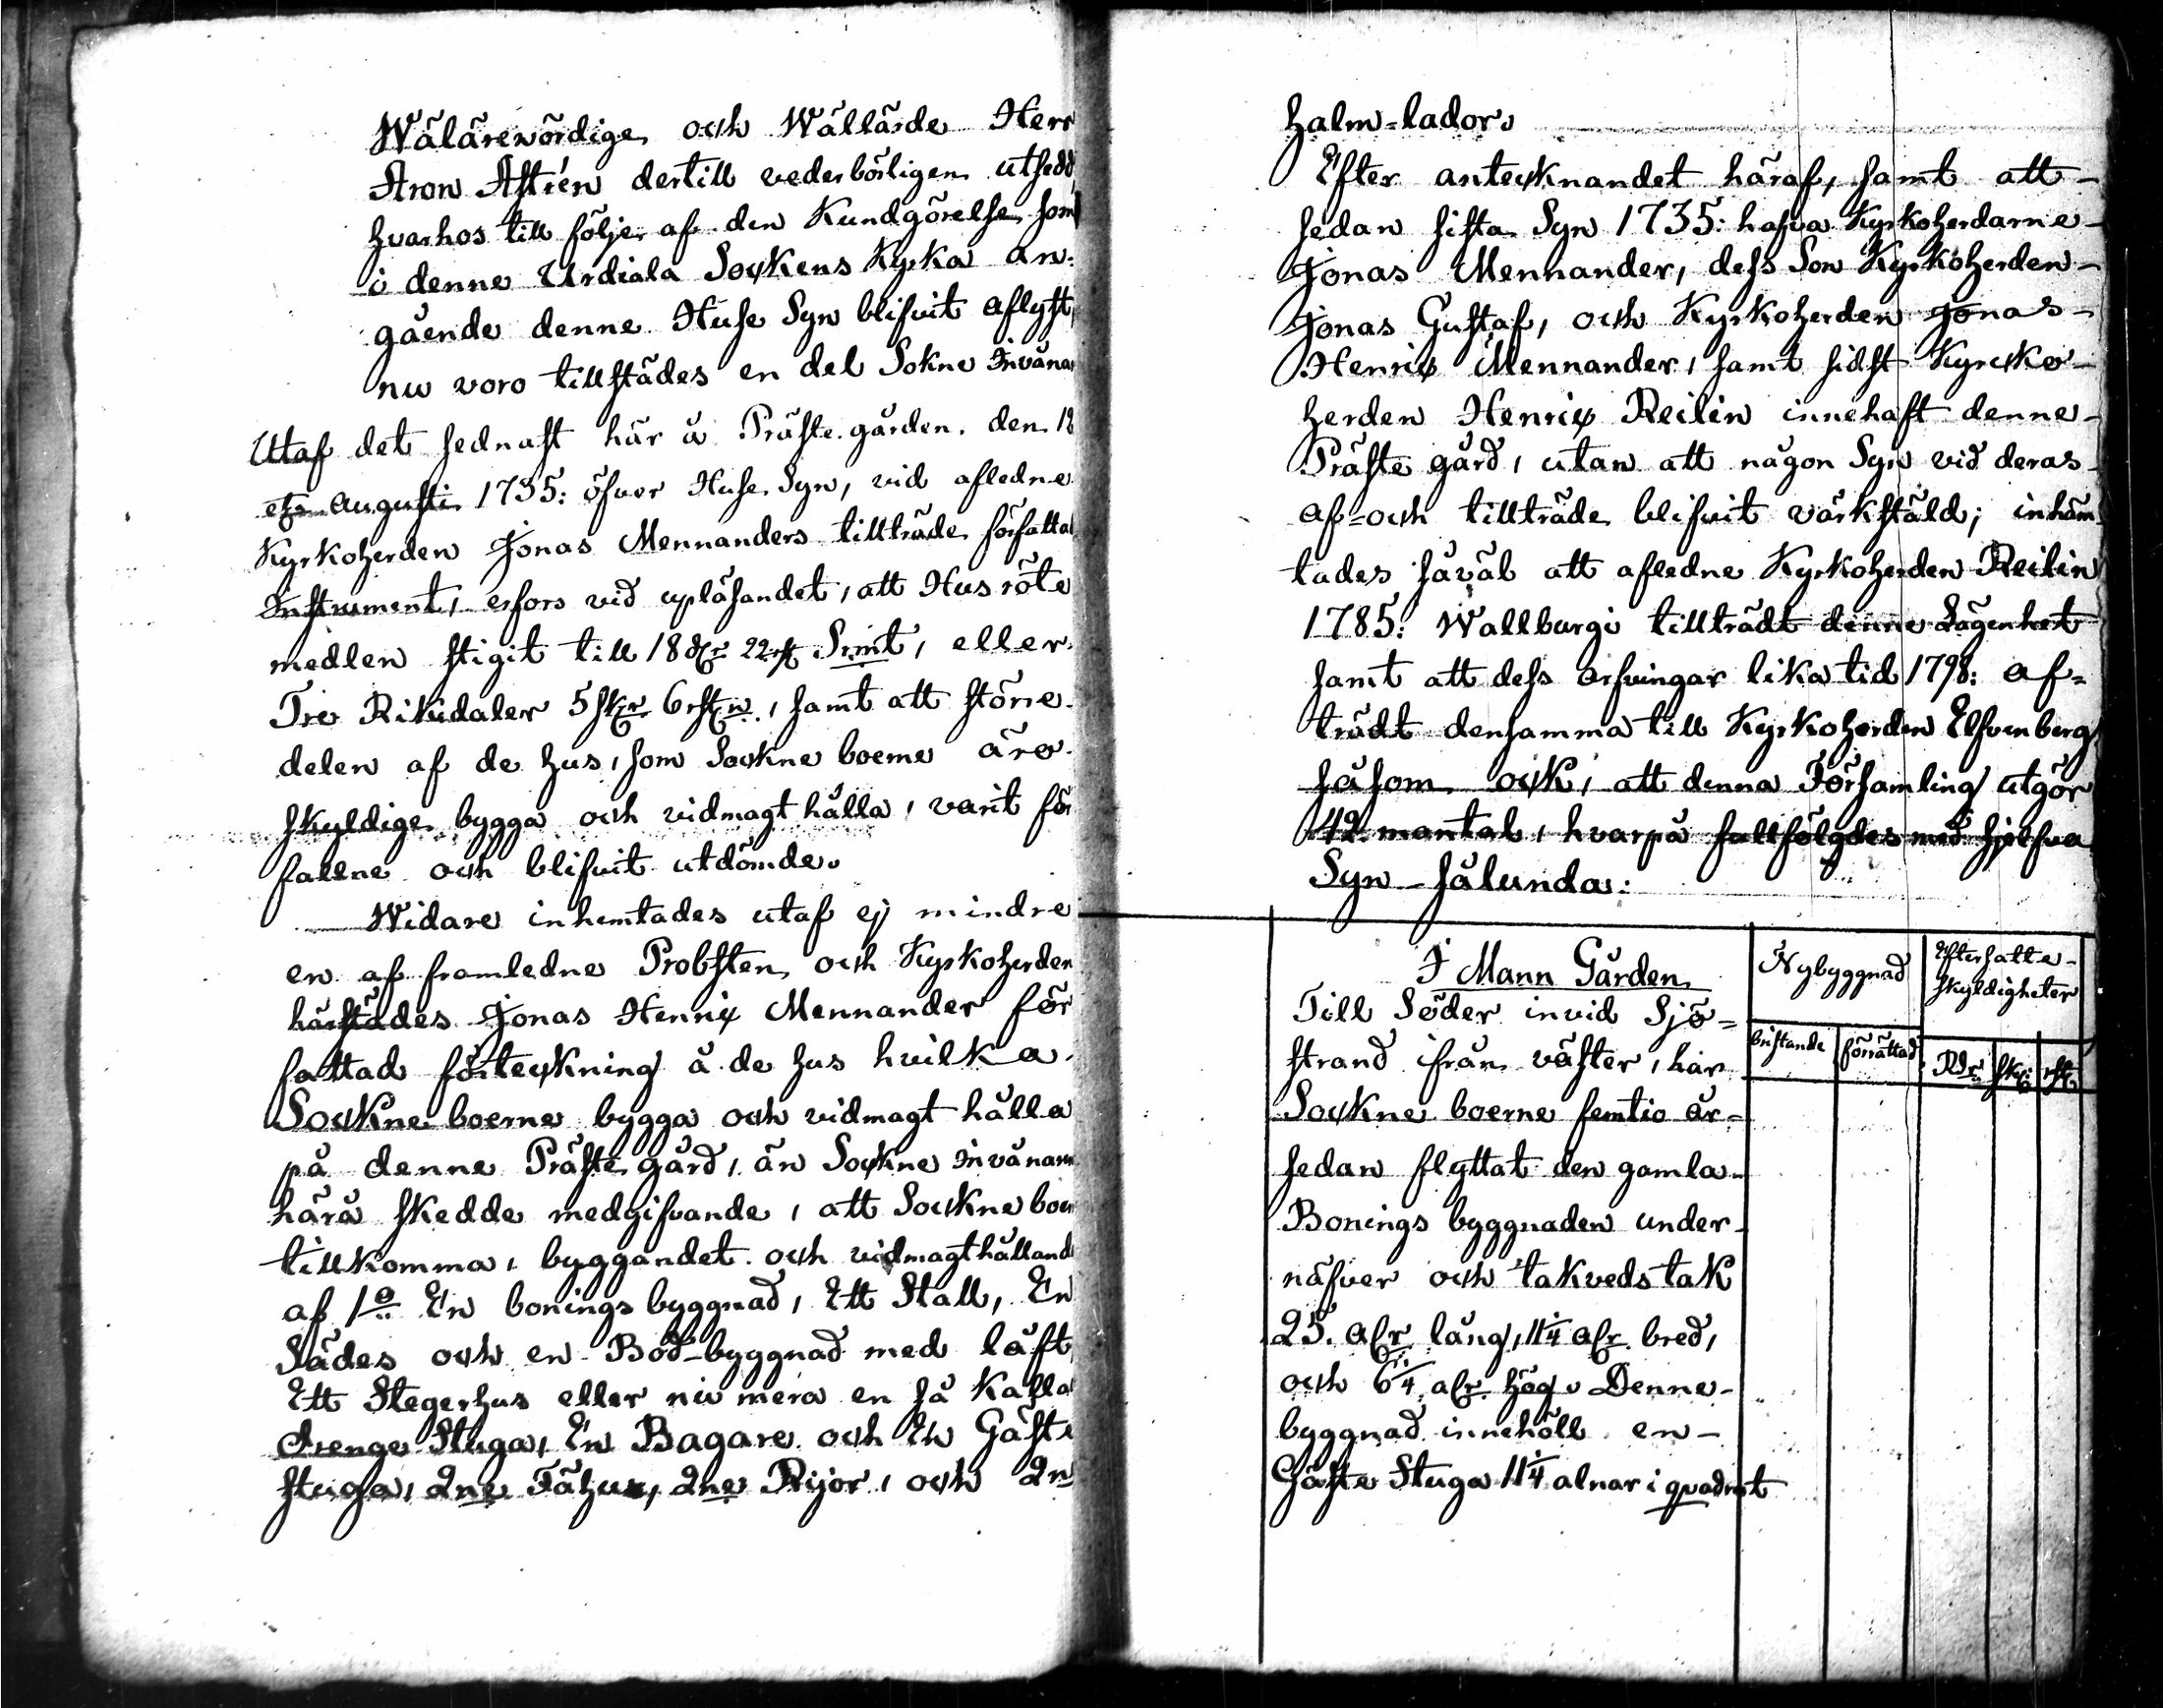 Wälärevördige och Wällärde Herr
Aron Astrén dertill vederbörligen utsedd,
hvarhos till följe af den Kundgörelse som
i denne Urdiala Sockens Kyrka an-
gående denne Huse Syn blifvit aflyst,
nu voro tillstädes en del Sokne Invånar
Utaf det sednast här å Präste gården den 18
Augusti 1735: öfver Huse Syn, vid afledne
Kyrkoherden Jonas Mennanders tillträde författa
Instrument, erfors vid upläsandet, att Husröte
medlen stigit till 18 dlr 22 Smt, eller
Tre Riksdaler 5 sk. 6 rst., samt att större
delen af de hus, som Sockne boerne äro
skyldige bygga och vidmagt hålla, varit för
fallne och blifvit utdömde.
Widare inhemtades utaf ej mindre
en af framledne Probsten och Kyrkoherden
härstädes Jonas Henric Mennander för
fattad förteckning å de hus hvilka
Sockne boerne bygga och vidmagt hålla
på denne Präste gård, än Sockne Invånarne
härå skedde medgifvande, att Sockne boer
tillkomma, byggandet och vidmagthålland
af 1o En bonings byggnad, Ett Stall, En
Sädes och en Bod-byggnad med låft,
Ett Stegerhus eller nu mera en så Kalla
drenge Stuga, En Bagare och En Gäste
stuga, 2ne Fähus, 2ne Rijor, och 2n
halm-lador.
Efter antecknandet häraf, samt att
sedan sista Syn 1735: hafva Kyrkoherdarne
Jonas Mennander, dess Son Kyrkoherden
Jonas Gustaf, och Kyrkoherden Jonas
Henric Mennander, samt sidst Kyrcko-
herden Henric Reilin innehaft denne
Präste gård, utan att någon Syn vid deras
af- och tillträde blifvit värkstäld; inhäm
tades såväl att afledne Kyrkoherden Reilin
1785: Wallburgi tillträdt denne Lägenhet
samt att dess arfvingar lika tid 1798: af-
trädt densamma till Kyrkoherden Elfvenberg,
såsom ock, att denna Församling utgör
42 mantal, hvarpå fullfölgdes med sjelfva
Syn sålunda:
I Mann Gården
Nybyggnad
Eftersatte
skyldigheter
bristande förrättad
Rdr sk: rst
Till Söder invid Sjö-
strand ifrån väster, har
Sockne boerne femtio år
sedan flyttat den gamla
Bonings byggnaden under
näfver och takveds tak
25. alr lång, 11 1/4 alr bred,
och 6 1/4 alr hög. Denne
byggnad innehöll en
Gäste Stuga 11 1/4 alnar i quadrat